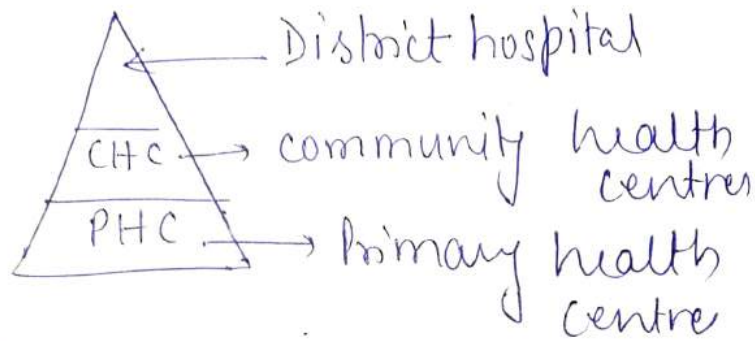 District hospital
CHC → community health
centres
PHC → Primary health
centre